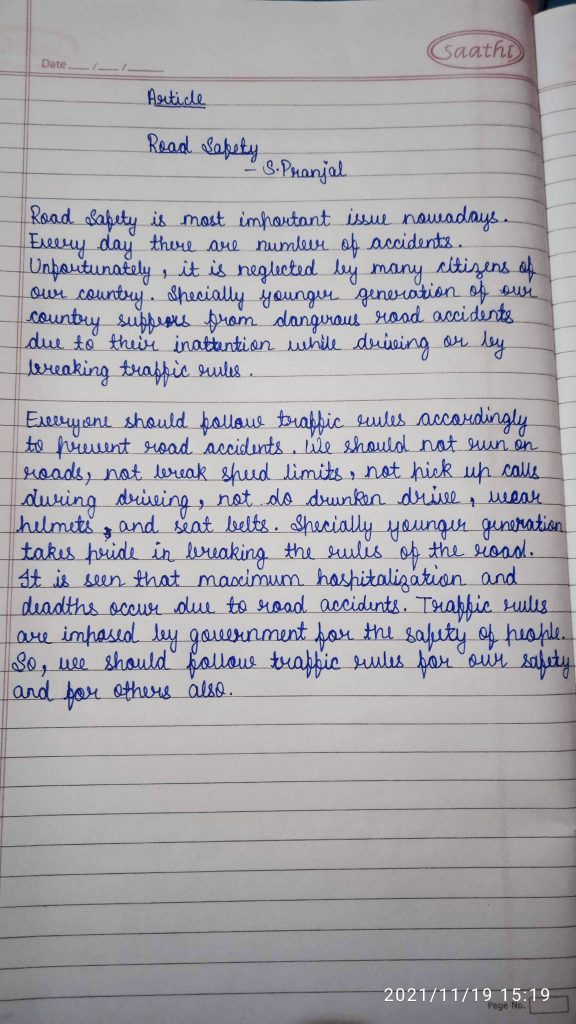 Saathi
Date __/__/____
Article
Road Safety
- S.Pranjal
Road Safety is most important issue nowadays.
Every day there are number of accidents.
Unfortunately, it is neglected by many citizens of
our country. Specially younger generation of our
country suffers from dangerous road accidents
due to their inattention while driving or by
breaking traffic rules.
Everyone should follow traffic rules accordingly
to prevent road accidents. We should not run on
roads, not break speed limits, not pick up calls
during driving, not do drunken drive, wear
helmets, and seat belts. Specially younger generation
takes pride in breaking the rules of the road.
It is seen that maximum hospitalization and
deadths occur due to road accidents. Traffic rules
are imposed by government for the safety of people.
So, we should follow traffic rules for our safety
and for others also.
2021/11/19 15:19
Page No.